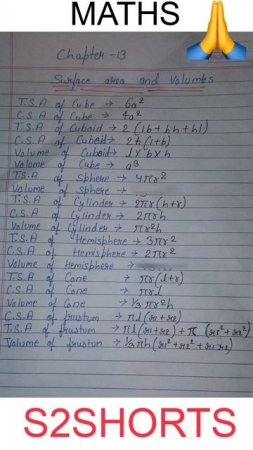 MATHS
Chapter-13
Surface area and Volumes
T.S.A of Cube → 6a²
C.S.A of Cube → 4a²
T.S.A of Cuboid → 2 (lb+bh+hl)
C.S.A of Cuboid → 2h(l+b)
Volume of Cuboid → l×b×h
Volume of Cube → a³
T.S.A of Sphere → 4πr²
Volume of Sphere →
T.S.A of Cylinder → 2πr(h+r)
C.S.A of Cylinder → 2πrh
Volume of Cylinder → πr²h
T.S.A of Hemisphere → 3πr²
C.S.A of Hemisphere → 2πr²
Volume of Hemisphere →
T.S.A of Cone → πr(l+r)
C.S.A of Cone → πrl
Volume of Cone → 1/3 πr²h
C.S.A of frustum → πl(r1+r2)
T.S.A of frustum → πl(r1+r2)+π (r1²+r2²)
Volume of frustum → 1/3πh(r1²+r2²+r1r2)
S2SHORTS